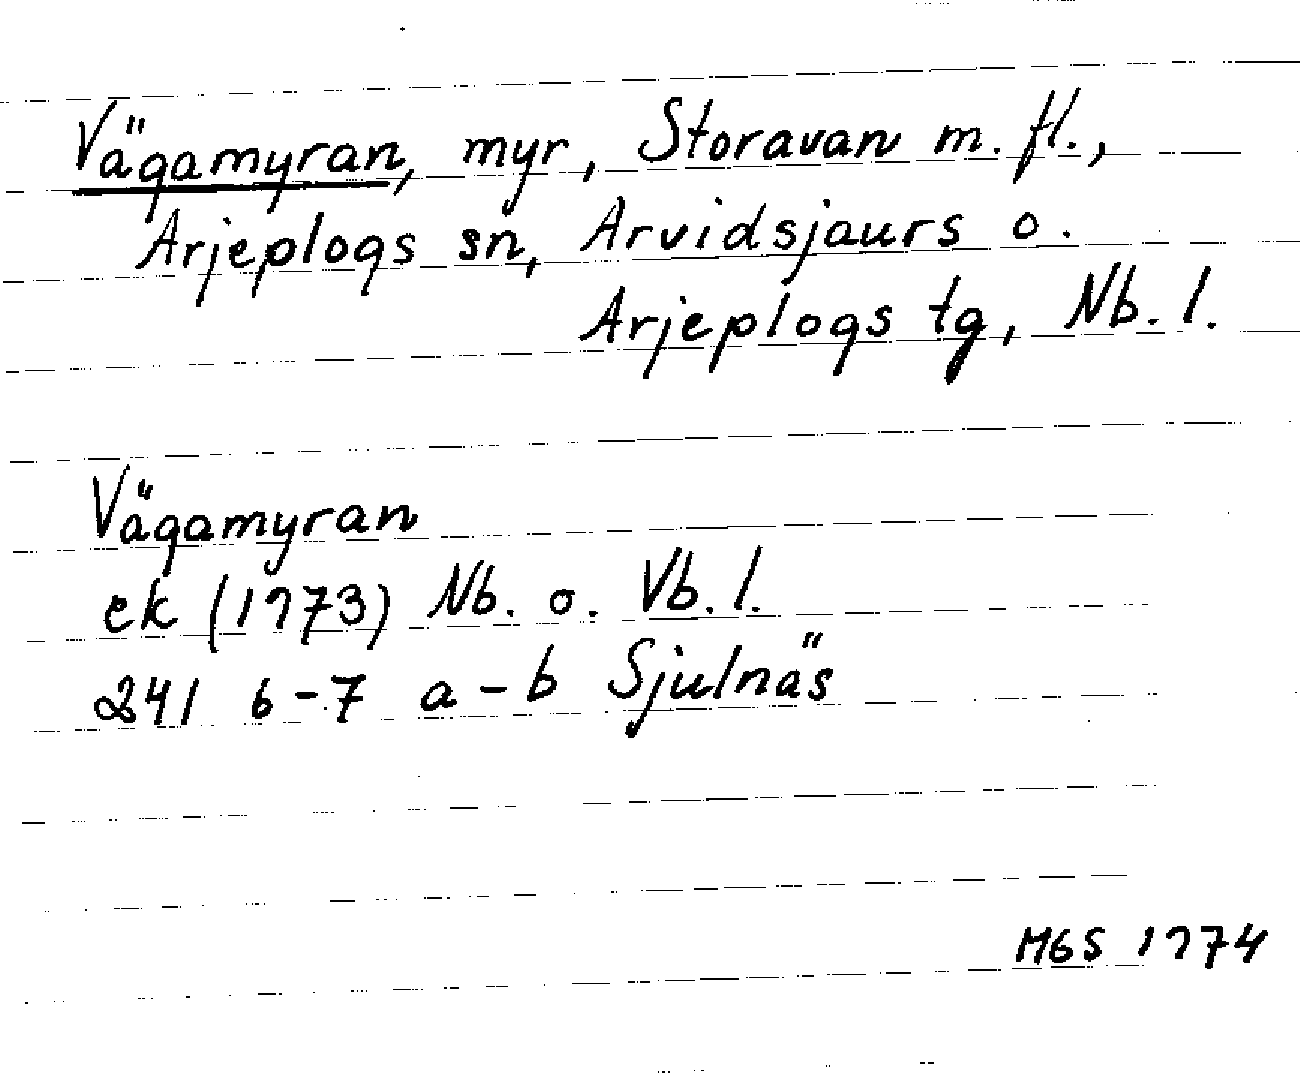 Vägamyran, myr, Storavan m. fl.,
Arjeplogs sn, Arvidsjaurs o.
Arjeplogs tg, Nb. l.
Vägamyran
ek (1973) Nb. o. Vb. l.
241 6-7 a-b Sjulnäs
MGS 1974